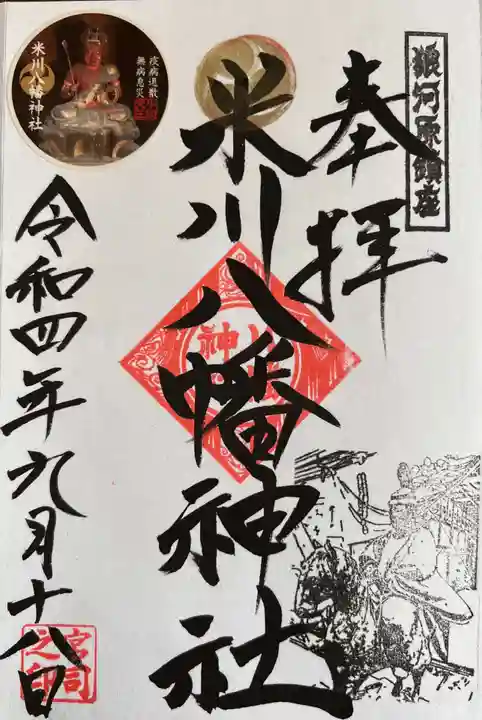 狼河原鎮座
奉拝
米川八幡神社
令和四年九月十八日
疫病退散
無病息災
米川八幡神社
宮司
之印